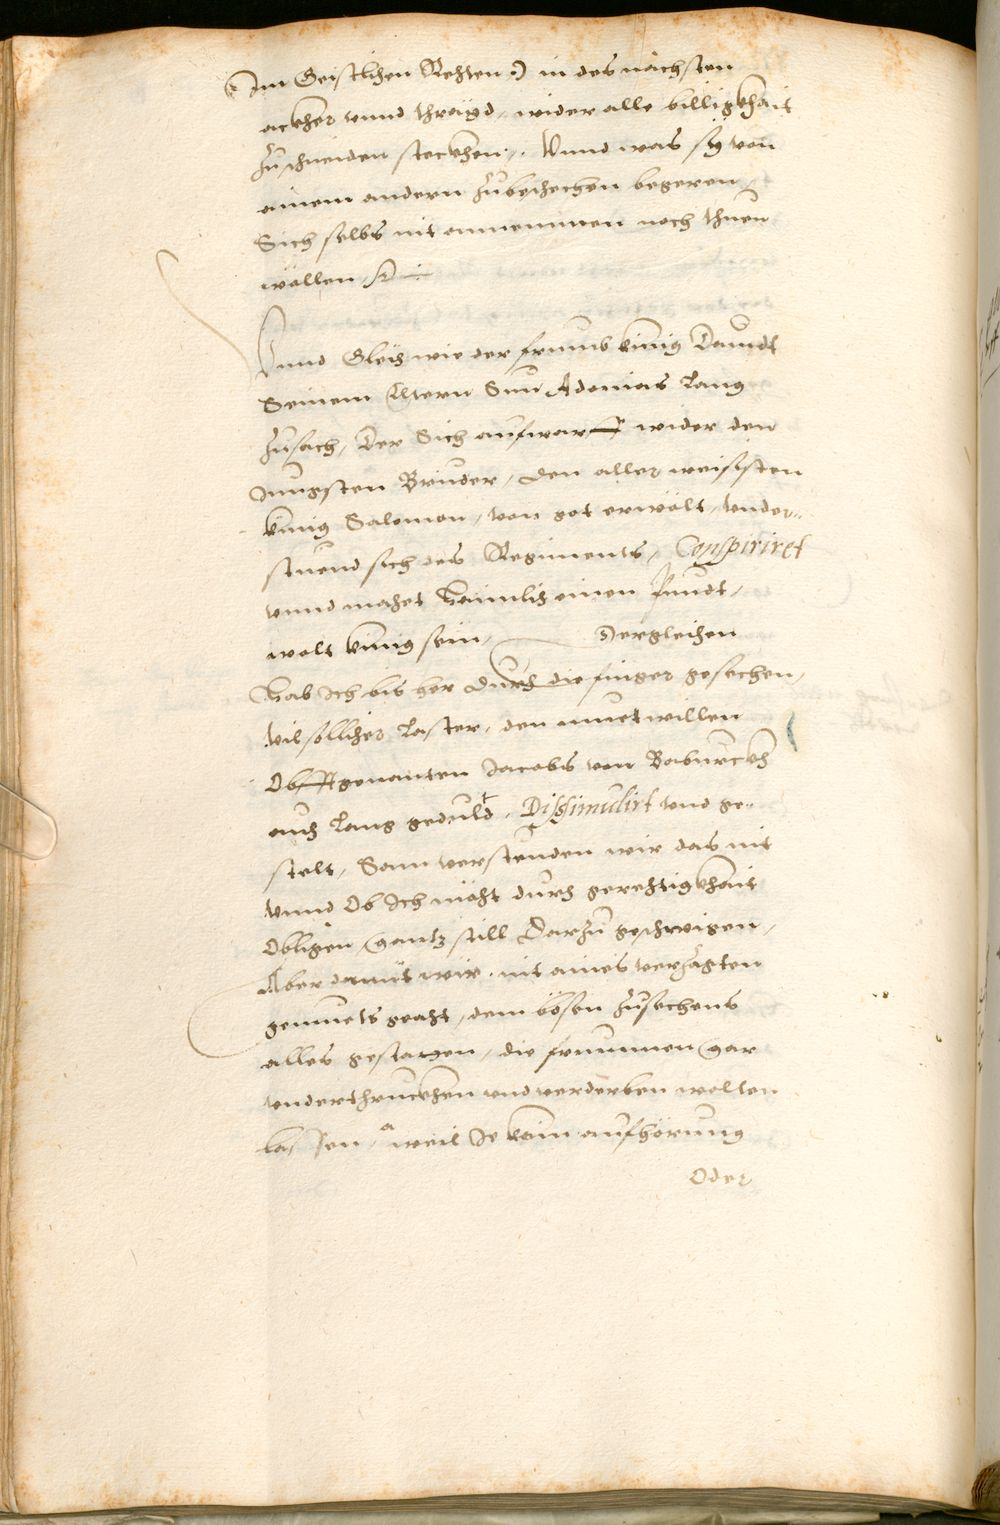 (: Im Geistlichen Rechten :) in des nächsten
ackher vnnd thraÿd, wider alle billigkhait
Zuschneiden steckhen. Vnnd was sÿ von
ainem andern Zubeschechen begeren,
Sich selbs nit annemmen noch thuen
wöllen
Vnnd Gleich wie der frumb künig Dauidt
Seinem Eltern Sun Adonias lang
Zusach, Der Sich aufwarff wider den
Jungsten Brueder, den aller weisisten
künig Salomon, von got erwölt, vnder-
stuend sich des Regiments, Conspiriret
vnnd machet haimlich einen Pundt,
wolt künig sein, Dergleichen
Hab Ich bis her durch die finger gesechen,
Vil sollicher laster, den muetwillen
Obgenanten Jacobs von
auch lang geduldt, Dissimulirt vnd ge-
stelt, Sam verstuenden wir das nit
Vnnd Ob Ich nicht durch gerechtigkhait
Obligen gantz still Darzu geschwigen,
Aber damit wir nit aines verzagten
gemuets geacht, dem bösen Zusechens
alles gestaten, die frummen gar
vnderthruckhen vnd verderben wolten
lassen, weil Je kain aufhörung
Oder